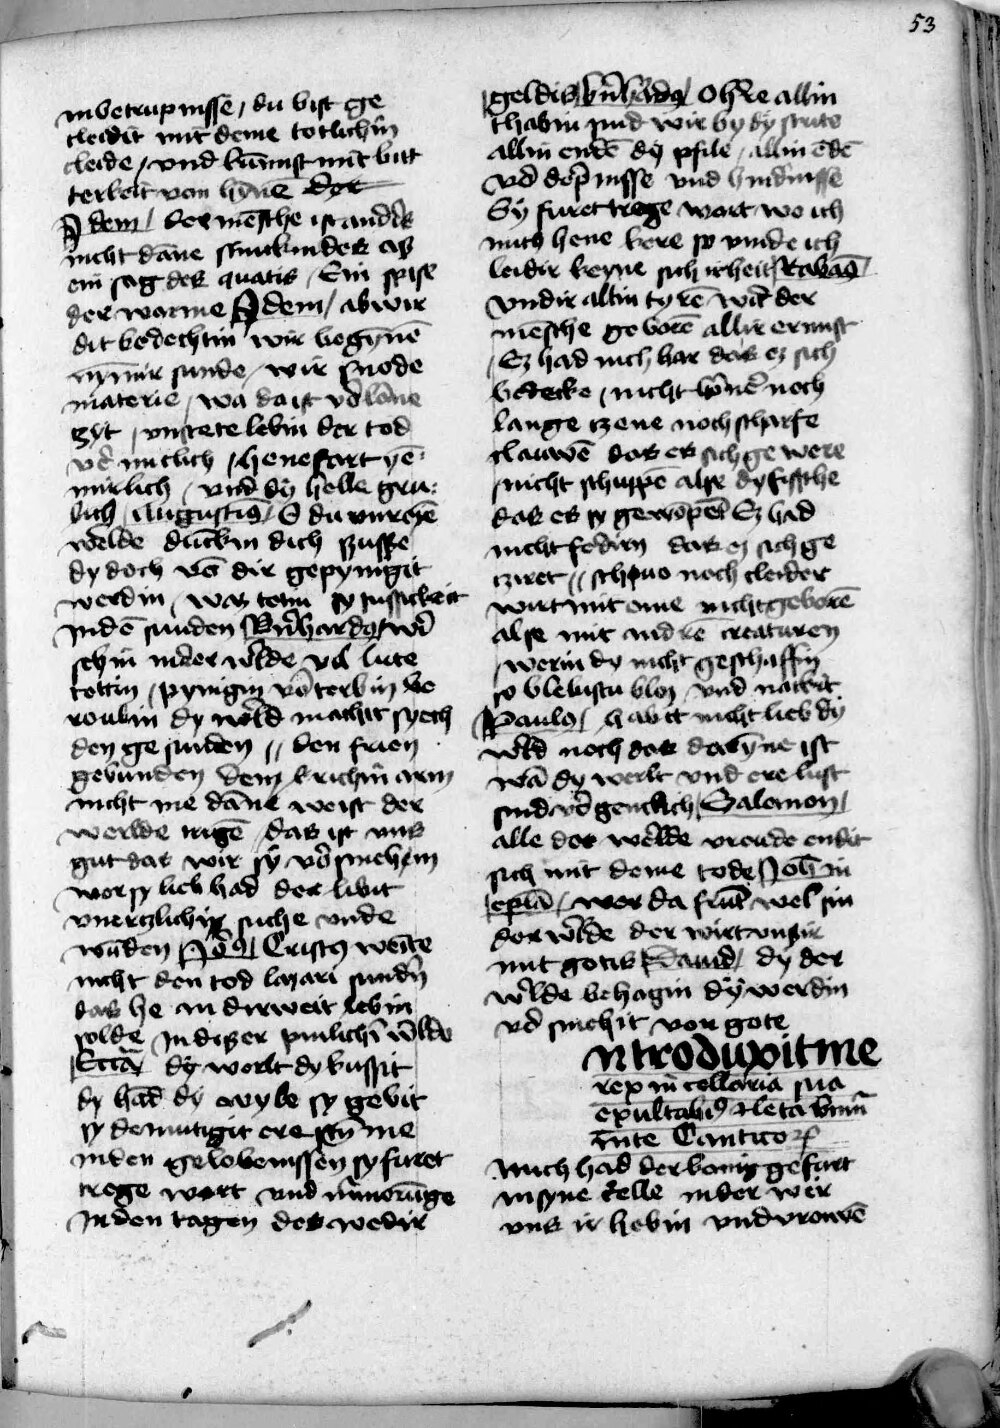 53
in betrupnisse / du bist ge
cleidit mit deme totlichin
cleide / vnd kummist mit bitt
terkeit von hyne der
Idem / der mensche ist andirs
nicht danne stinkindes as
ein sag des quatis / Ein spise
der worme Idem / ab wir
dit bedechtin wir begynnē
nymmir sunde / wir snode
materie / wa da ist vorlorne
tzyt / vnstete lebin der tod
vormitlich / hene fart yē
mirlich / vnd dy helle gru
lich / Augustinus / O du vnreyē
werlde dunckin dich szusse
dy doch von dir gepynigit
werdin / waz totin sy sussicheit
Inden sunden Bernhardus wir
sehin in der werlde vil lute
tottin / pynigin vorterbin be
roubin dy werld machit syech
den ge sunden // den frien
gebunden dem krichin arm
nicht me danne weist der
werlde trugē / das ist vns
gut das wir sy vorsmehen
wor sy lieb had der libit
vnertzlichin suche vnde
wunden Cristus weite
nicht den tod lazari sundir
das he andirweit lebin
solde In diser pinlichin werlde
dy werlt dy kussit
dy had dy wybe sy gebit
sy demutigit ere stymme
in den gelobenissen sy furet
trege wort vnd murmorunge
In den tagen des wedir
geldis / bernhardus / O herre allin
thabin sind wir by dy strite
allin enden dy pfile / allin ēdē
vordopnisse vnd hindnisse
Sy furet trege wort wo ich
mich hene kere so vinde ich
leidir keyne sichirheit / Rabanus /
Vndir allin tyren wirt der
mensche geboren allir ermist
/ Ez had nich har das ez sich
bedecke / nicht horner noch
lange tzene noch scharfe
clauwē das es sich ge were
/ nicht schuppē alse dy fissche
das es sy gewopent Ez had
nicht fedirn das ez sich ge
tziret // schuo noch cleider
wirt mit eme nicht geborē
alse mit andrē creaturen
/ werin dy nicht geschaffin
so blebistu bloz vnd nackit
Paulus / habit nicht lieb dy
werld noch das daryne ist
wan dy werlt vnd ere lust
sind vorgenclich / Salomon /
alle der werlde vreude endit
sich mit deme tode Joh in
epla / wer da frunt wel sin
der werlde der wirt vngir
mit gotis Dauid / dy der
werlde behagin dy werdin
vorsmehit von gote
Introduxit me
rex in cellaria sua
exultabimus et letabimur
in te Canticorum
Mich had der konig gefurt
in syne celle in der wir
vns ir hebin vnd vrowē